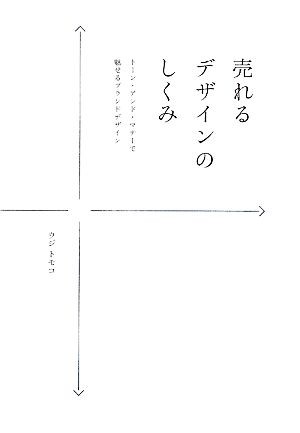 売れる
デザインの
しくみ
トーン・アンド・マナーで
魅せるブランドデザイン
ウジ トモコ